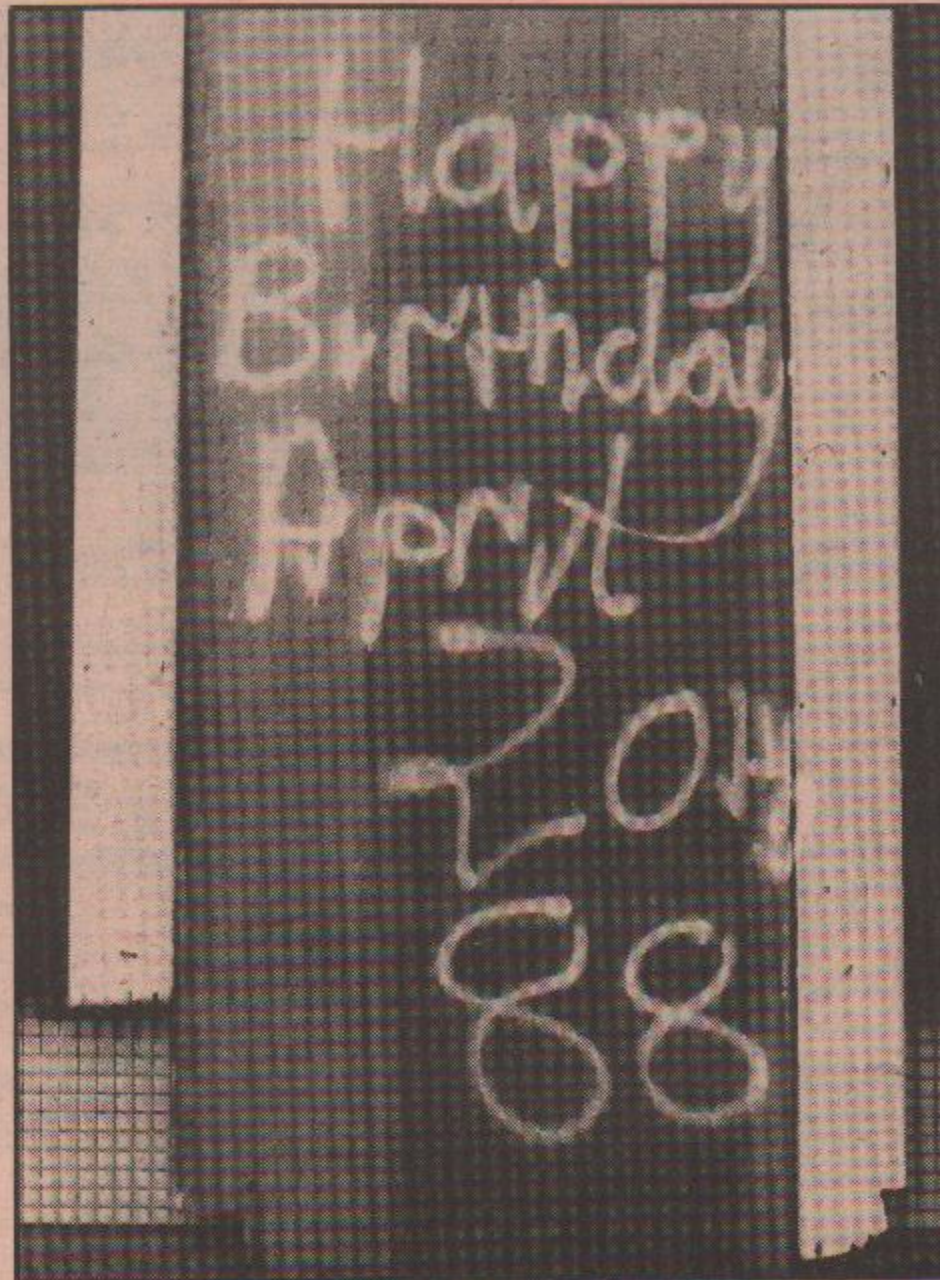 Happy
Birthday
April
20
88